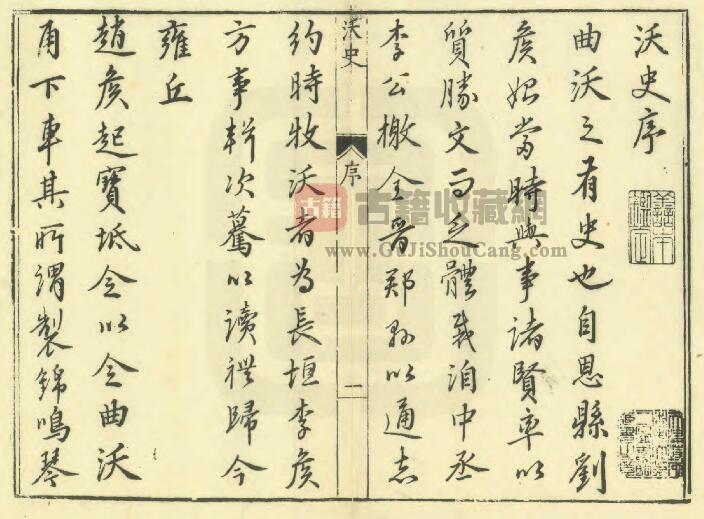 沃史序
曲沃之有史也自恩縣劉
侯始當時與事諸賢率以
質勝文而乏體裁洎中丞
李公檄全晋郑縣以通志
沃史
序
一
約時牧沃者為長垣李侯
方事輯次騖以讀禮歸今
雍丘
趙侯起寶坻令以令曲沃
甫下車其所謂製錦鳴琴
古籍
古籍收藏網
www.GuJiShouCang.com